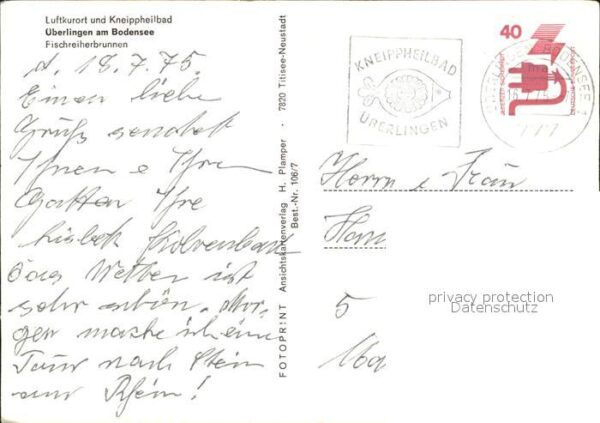 Luftkurort und Kneippheilbad
Überlingen am Bodensee
Fischreiherbrunnen
d. 18.7.75.
Einen liebe
Gruß sendet
Ihnen e Ihre
Gatten Ihre
das Wetter ist
sehr schön. Mor-
gen mache ich eine
Tour nach Stein
am Rhein!
FOTOPRINT Ansichtskartenverlag H. Plamper · 7820 Titisee-Neustadt
Best.-Nr. 106/7
KNEIPPHEILBAD
ÜBERLINGEN
40
Herrn e Frau
Han
5
privacy protection
Datenschutz